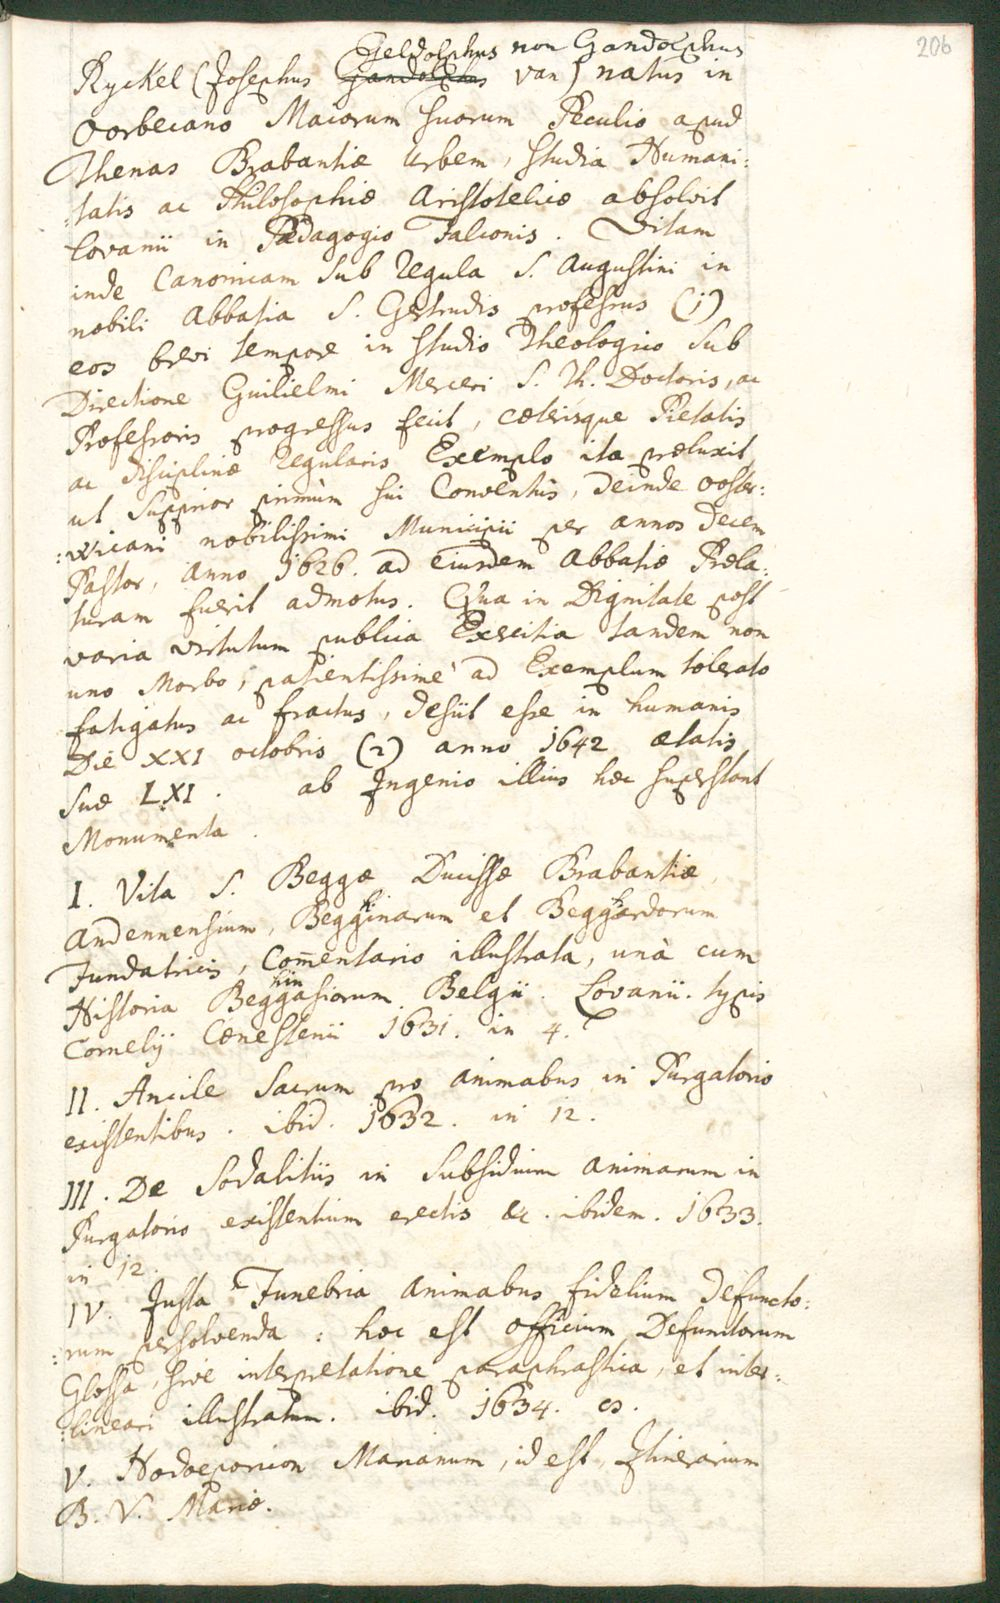 206
Geldolphus non Gandolphus
Ryckel (Josephus Gandolphus van) natus in
Oorbecano Maiorum suorum Peculio apud
Thenas Brabantiæ urbem, studia Humani:
:tatis ac Philosophiæ Aristotelicæ absolvit
Lovanii in Pædagogio Falconis. Vitam
inde Canonicam sub regula S. Augustini in
nobili Abbatia S. Gertrudis professus (1)
eos brevi tempore in studio Theologico sub
Directione Guilielmi Merceri S. Th. Doctoris, ac
Professoris progressus fecit, cæterisque Pietatis
ac disciplinæ regularis Exemplo ita præluxit,
ut Supprior primùm sui Conventûs, deinde Ooster:
:wicani nobilissimi Municipii per annos decem
Pastor, anno 1626. ad eiusdem Abbatiæ Præla:
turam fuerit admotus. Qua in Dignitate post
varia virtutum publica Exercitia tandem non
uno Morbo, patientissimè ad Exemplum tolerato
fatigatus ac fractus, desiit esse in humanis
Die XXI octobris (2) anno 1642 ætatis
suæ LXI. ab Ingenio illius hæc superstant
Monumenta.
I. Vita S. Beggæ Ducissæ Brabantiæ
Andennensium, Begginarum et Beggardorum
Fundatricis, Com̄entario illustrata, unà cum
Historia Beggasiorum Belgii. Lovanii. typis
Cornelij Cænestenii 1631. in 4.
II. Ancile Sacrum pro animabus in Purgatorio
existentibus. ibid. 1632. in 12.
III. De Sodalitiis in Subsidium animarum in
Purgatorio existentium erectis &c. ibidem. 1633.
in 12.
IV. Justa Funebria animabus fidelium defuncto:
:rum persolvenda: hoc est officium Defunctorum
Glossa, sive interpretatione paraphrastica, et inter:
:lineari illustratum. ibid. 1634.
V. Hodoeporicon Marianum, id est, Itinerarium
B. V. Mariæ.